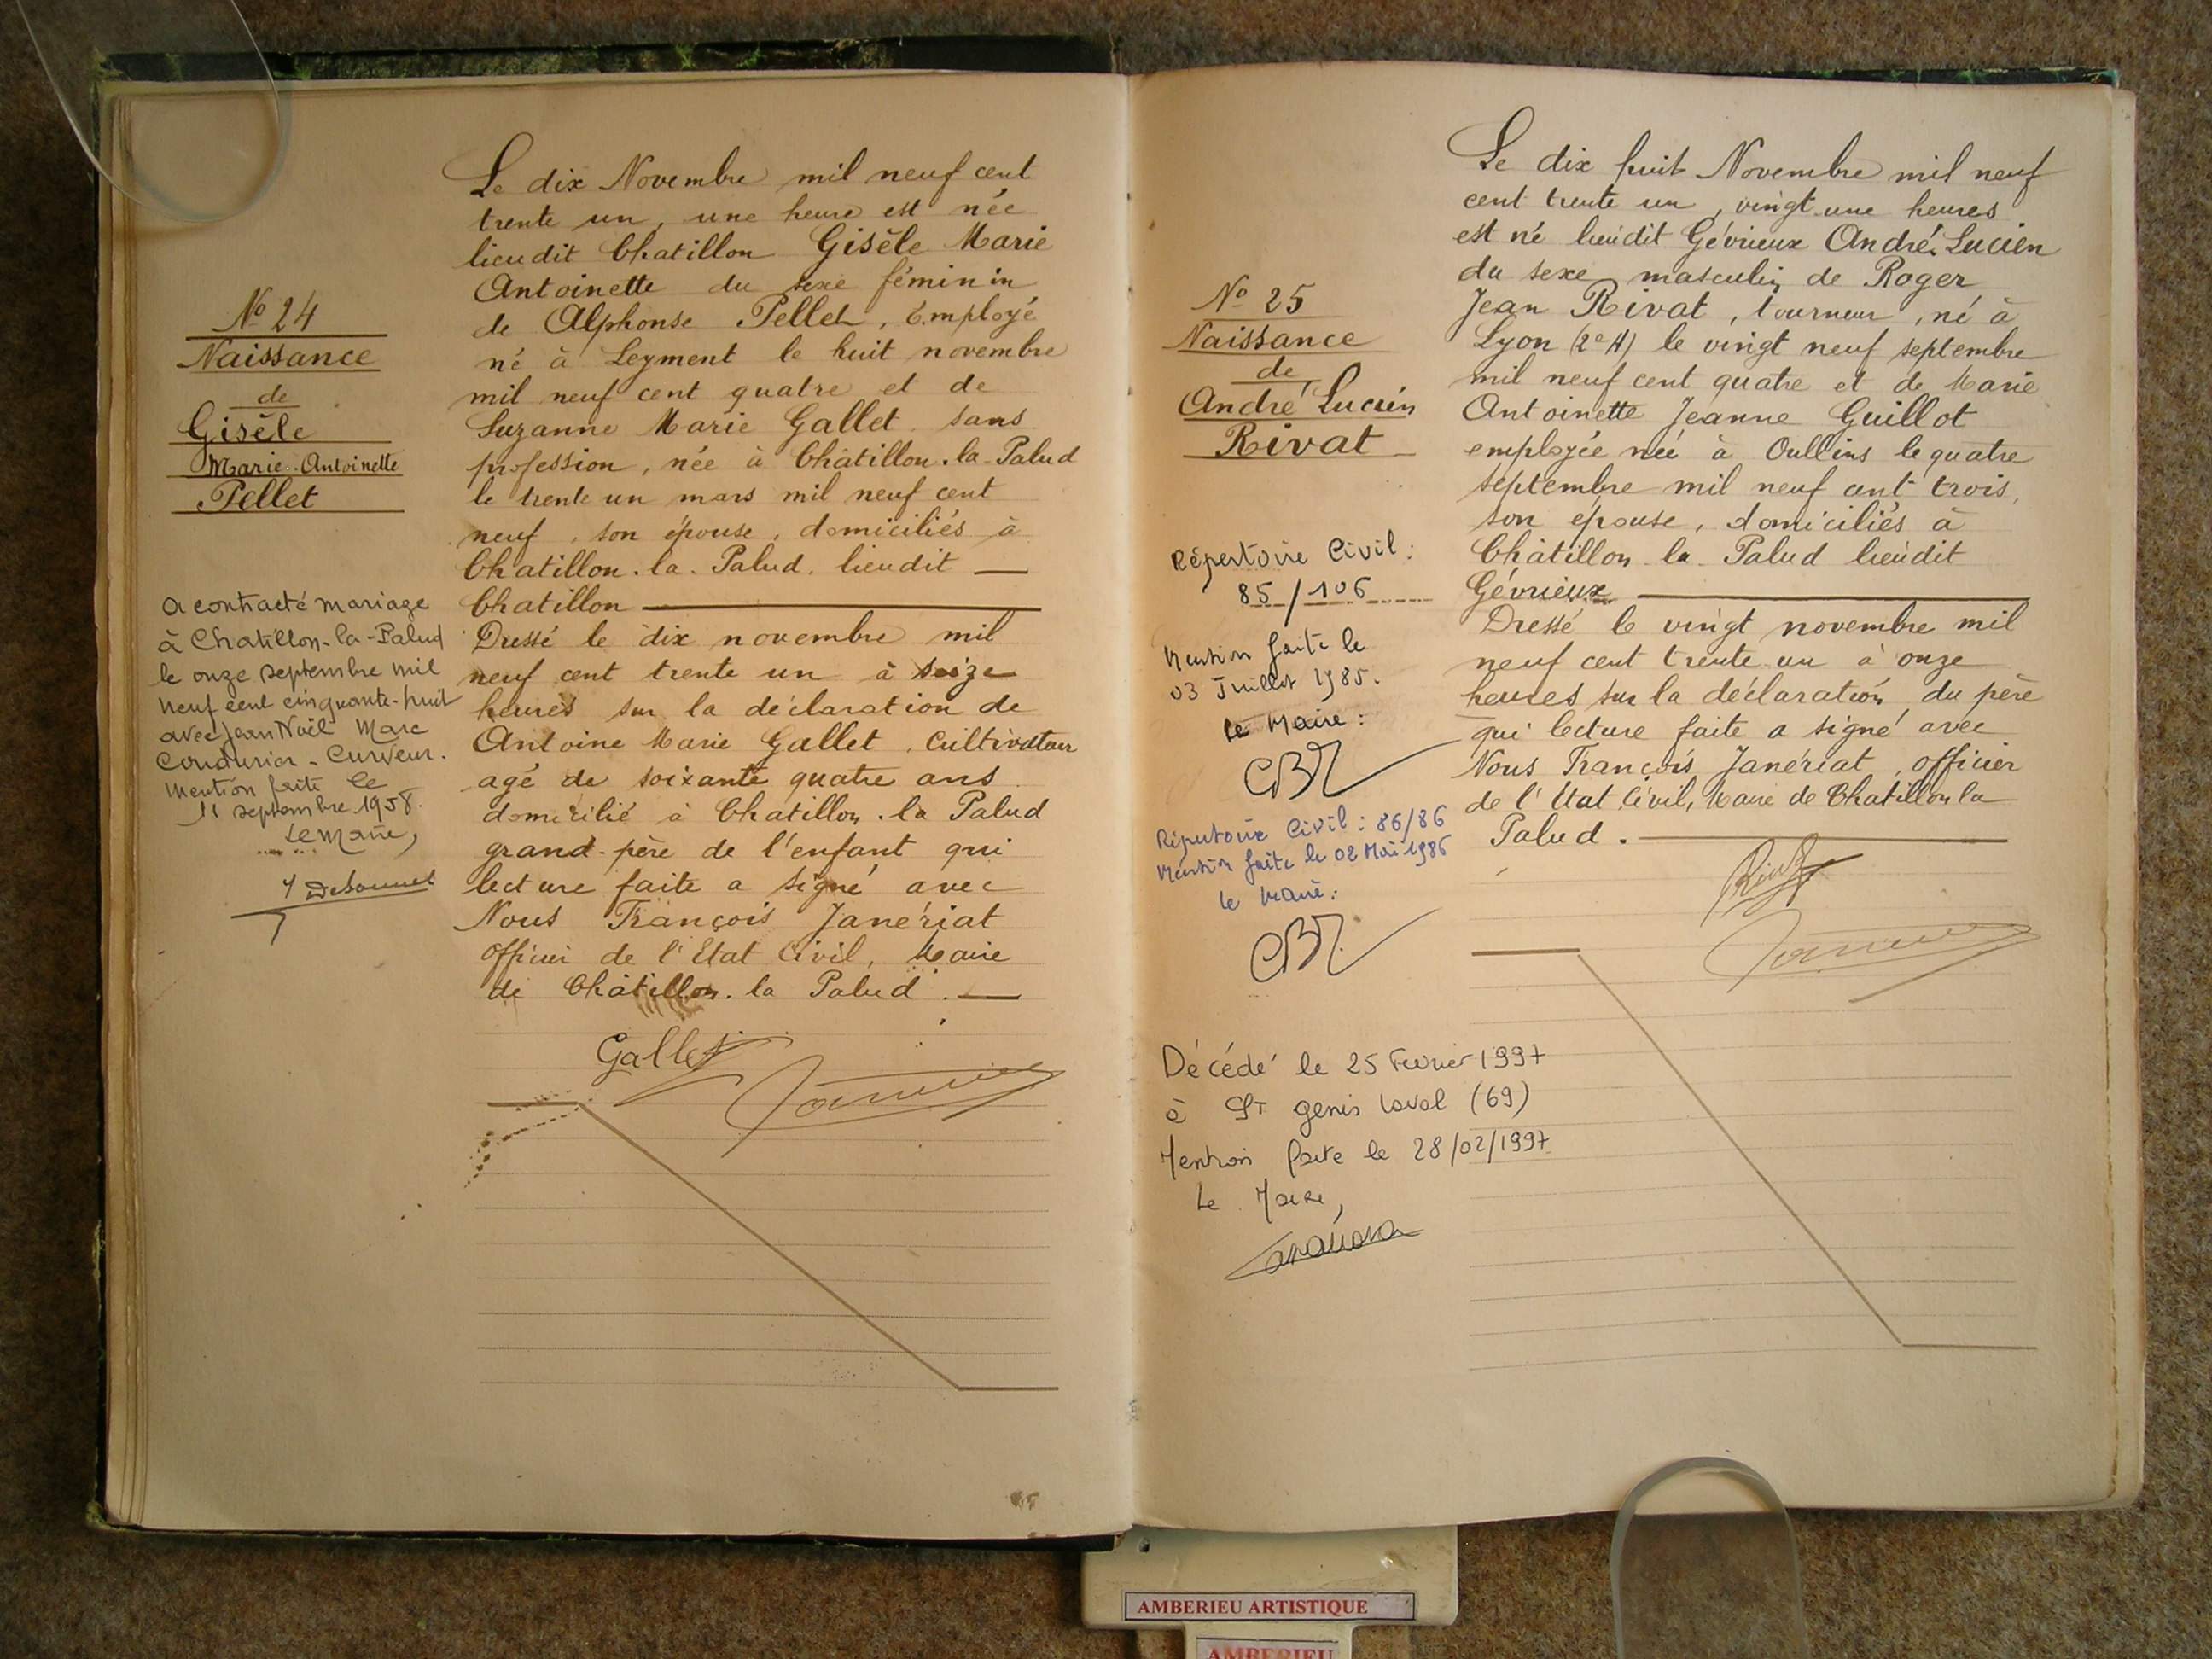 N° 24
Naissance
de
Gisèle
Marie-Antoinette
Pellet
a contracté mariage
à Chatillon-la-Palud
le onze septembre mil
neuf cent cinquante-huit
avec Jean Noël Marc
Mention faite le
11 septembre 1958.
Le Maire,
Le dix Novembre mil neuf cent
trente un, une heure est née
lieudit Chatillon Gisèle Marie
Antoinette du sexe féminin
de Alphonse Pellet, Employé
né à Leyment le huit novembre
mil neuf cent quatre et de
Suzanne Marie Gallet sans
profession, née à Châtillon-la-Palud
le trente un mars mil neuf cent
neuf, son épouse, domiciliés à
Chatillon-la-Palud, lieudit
Chatillon
Dressé le dix novembre mil
neuf cent trente un à seize
heures sur la déclaration de
Antoine Marie Gallet, Cultivateur
agé de soixante quatre ans
domicilié à Chatillon-la Palud
grand-père de l'enfant qui
lecture faite a signé avec
Nous François Janériat
officier de l'Etat Civil, Maire
de Châtillon-la Palud.
Gallet
N° 25
Naissance
de
André Lucien
Rivat
Répertoire Civil:
85/106
Mention faite le
03 Juillet 1985.
Le Maire:
Répertoire Civil: 86/86
Mention faite le 02 Mai 1986
le Maire:
Décédé le 25 Février 1997
à St genis Laval (69)
Mention faite le 28/02/1997
Le Maire,
Le dix huit Novembre mil neuf
cent trente un, vingt une heures
est né lieudit Gévrieux André Lucien
du sexe masculin de Roger
Jean Rivat, tourneur, né à
Lyon (2e A) le vingt neuf septembre
mil neuf cent quatre et de Marie
Antoinette Jeanne Guillot
employée née à Oullins le quatre
septembre mil neuf cent trois,
son épouse, domiciliés à
Châtillon la Palud lieudit
Gévrieux
Dressé le vingt novembre mil
neuf cent trente un à onze
heures sur la déclaration du père
qui lecture faite a signé avec
Nous François Janériat, officier
de l'Etat Civil, Maire de Chatillon la
Palud.
AMBERIEU ARTISTIQUE
AMBERIEU